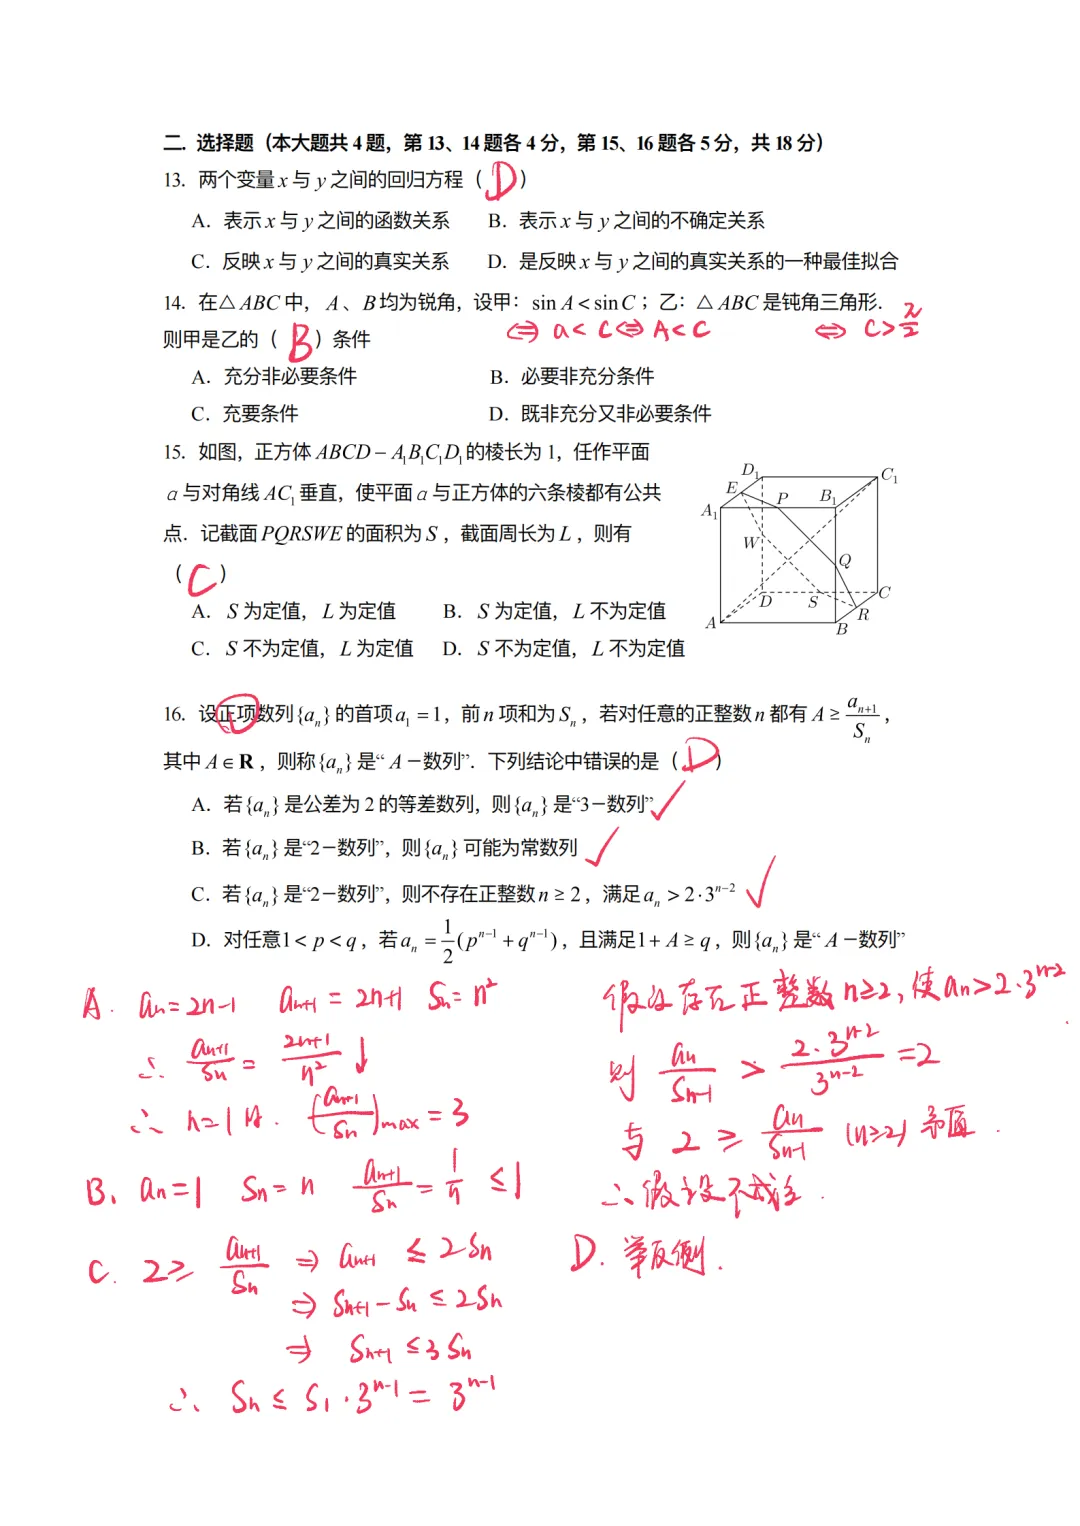 二. 选择题（本大题共 4 题，第 13、14 题各 4 分，第 15、16 题各 5 分，共 18 分）
13. 两个变量 x 与 y 之间的回归方程（ D ）
A. 表示 x 与 y 之间的函数关系 B. 表示 x 与 y 之间的不确定关系
C. 反映 x 与 y 之间的真实关系 D. 是反映 x 与 y 之间的真实关系的一种最佳拟合
14. 在△ABC 中， A 、 B 均为锐角，设甲：sin A < sin C ；乙：△ABC 是钝角三角形.
⇔ a < c ⇔ A < C ⇔ C > π/2
则甲是乙的（ B ）条件
A. 充分非必要条件 B. 必要非充分条件
C. 充要条件 D. 既非充分又非必要条件
15. 如图，正方体 ABCD − A₁B₁C₁D₁ 的棱长为 1，任作平面
α 与对角线 AC₁ 垂直，使平面 α 与正方体的六条棱都有公共
点．记截面 PQRSWE 的面积为 S ，截面周长为 L ，则有
（ C ）
A. S 为定值，L 为定值 B. S 为定值，L 不为定值
C. S 不为定值，L 为定值 D. S 不为定值，L 不为定值
D₁ C₁
E P B₁
A₁
W Q
D S C
R
A B
16. 设正项数列{aₙ} 的首项 a₁ = 1，前 n 项和为 Sₙ ，若对任意的正整数 n 都有 A ≥ aₙ₊₁/Sₙ ，
其中 A ∈ R ，则称{aₙ} 是“ A －数列”．下列结论中错误的是（ D ）
A. 若{aₙ} 是公差为 2 的等差数列，则{aₙ} 是“3－数列” ✓
B. 若{aₙ} 是“2－数列”，则{aₙ} 可能为常数列 ✓
C. 若{aₙ} 是“2－数列”，则不存在正整数 n ≥ 2 ，满足 aₙ > 2·3ⁿ⁻² ✓
D. 对任意1 < p < q ，若 aₙ = 1/2 (pⁿ⁻¹ + qⁿ⁻¹) ，且满足1 + A ≥ q ，则{aₙ} 是“ A －数列”
A. aₙ = 2n-1 aₙ₊₁ = 2n+1 Sₙ = n²
∴ aₙ₊₁/Sₙ = 2n+1/n² ↓
∴ n=1时. (aₙ₊₁/Sₙ)max = 3
B. aₙ = 1 Sₙ = n aₙ₊₁/Sₙ = 1/n ≤ 1
C. 2 ≥ aₙ₊₁/Sₙ ⇒ aₙ₊₁ ≤ 2Sₙ
⇒ Sₙ₊₁ - Sₙ ≤ 2Sₙ
⇒ Sₙ₊₁ ≤ 3Sₙ
∴ Sₙ ≤ S₁·3ⁿ⁻¹ = 3ⁿ⁻¹
假设存在正整数n≥2, 使aₙ>2·3ⁿ⁻²
则 aₙ/Sₙ₋₁ > 2·3ⁿ⁻²/3ⁿ⁻² = 2
与 2 ≥ aₙ/Sₙ₋₁ (n≥2) 矛盾.
∴ 假设不成立.
D. 举反例.